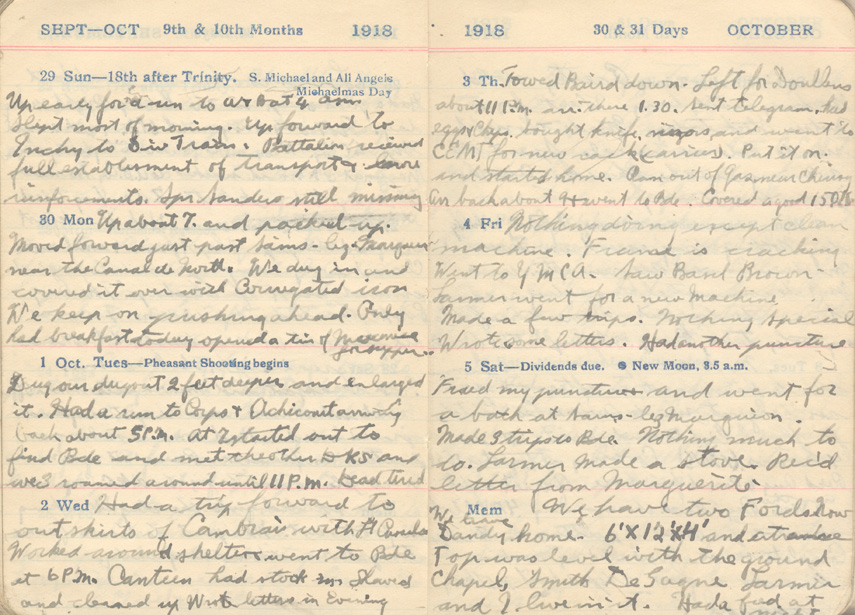 SEPT—OCT 9th & 10th Months 1918
29 Sun—18th after Trinity. S. Michael and All Angels
Michaelmas Day
Up early for a run to at 4 am
Slept most of morning. Up forward to
Inchy to Div Train. Battalion received
full establishment of transport &
reinforcements. Spr Sanders still missing
30 Mon Up about 7. and packed up.
Moved forward just past Sains-leg-Marquion
near the Canal de North. We dug in and
covered it over with Corrugated iron
We keep on pushing ahead. Only
had breakfast today opened a tin of
for supper
1 Oct. Tues—Pheasant Shooting begins
Dug our dugout 2 feet deeper and enlarged
it. Had a run to Corps & Achicourt arriving
back about 5 P.M. At 7 started out to
find Bde and met the other DRS and
we 3 roamed around until 11 P.M. Dead tired
2 Wed Had a trip forward to
outskirts of Cambrai with Lt
Worked around shelter went to Bde
at 6 P.M. Canteen had stock in. Shaved
and cleaned up Wrote letters in Evening
1918 30 & 31 Days OCTOBER
3 Th. Towed Baird down. Left for Doullens
about 11 P.M. arr. there 1.30. Sent telegram, had
eggs & chips, bought knife, razors, and went to
for new cack (carrier). Put it on
and started home. Ran out of Gas near
Arr back about 9 & went to Bde. Covered a good 150
4 Fri Nothing doing except clean
machine. France is cracking
Went to YMCA. Saw Basil Brown
Larmer went for a new Machine
Made a few trips. Nothing special
Wrote some letters. Had another puncture
5 Sat—Dividends due. ● New Moon, 3.5 a.m.
Fixed my puncture and went for
a bath at Sains-leg Marquion.
Made 3 trips to Bde. Nothing much to
do. Larmer made a stove. Rec'd
letter from Marguerite
Mem We have two Fords now
We have
Dandy home. 6'X12'X4' and at
Top was level with the ground
Chapel, Smith DeGagne Larmer
and I live in it. Had a bed at